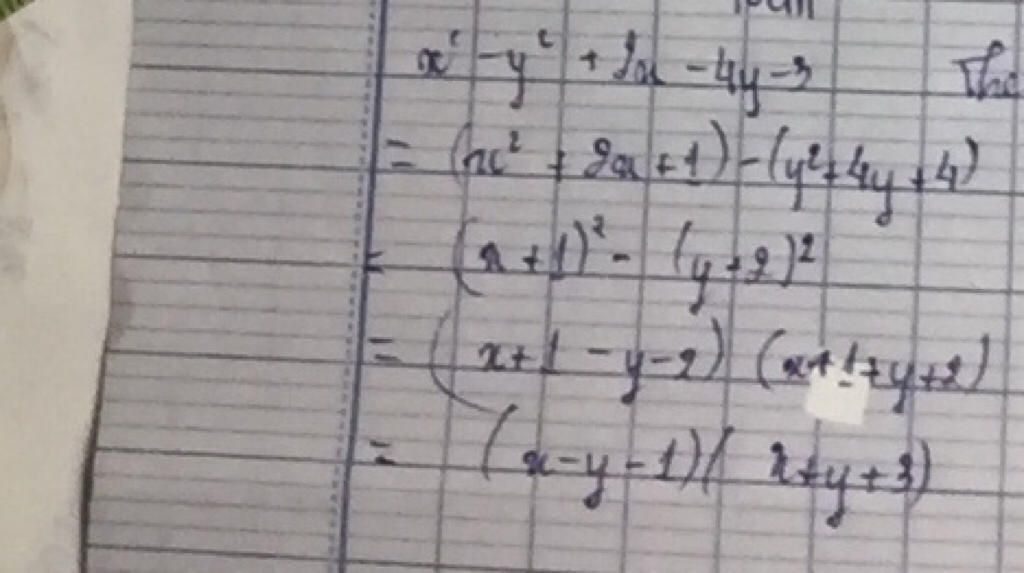 x² - y² + 2x - 4y - 3
= (x² + 2x + 1) - (y² + 4y + 4)
= (x + 1)² - (y + 2)²
= (x + 1 - y - 2) (x + 1 + y + 2)
= (x - y - 1) (x + y + 3)